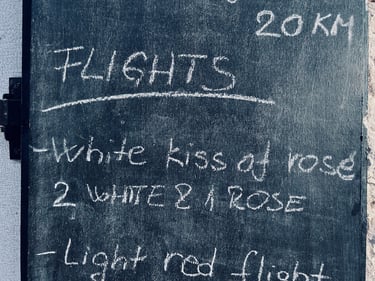 20 KM
FLIGHTS
- White kiss of rosé
2 WHITE & 1 ROSE
- Light red flight